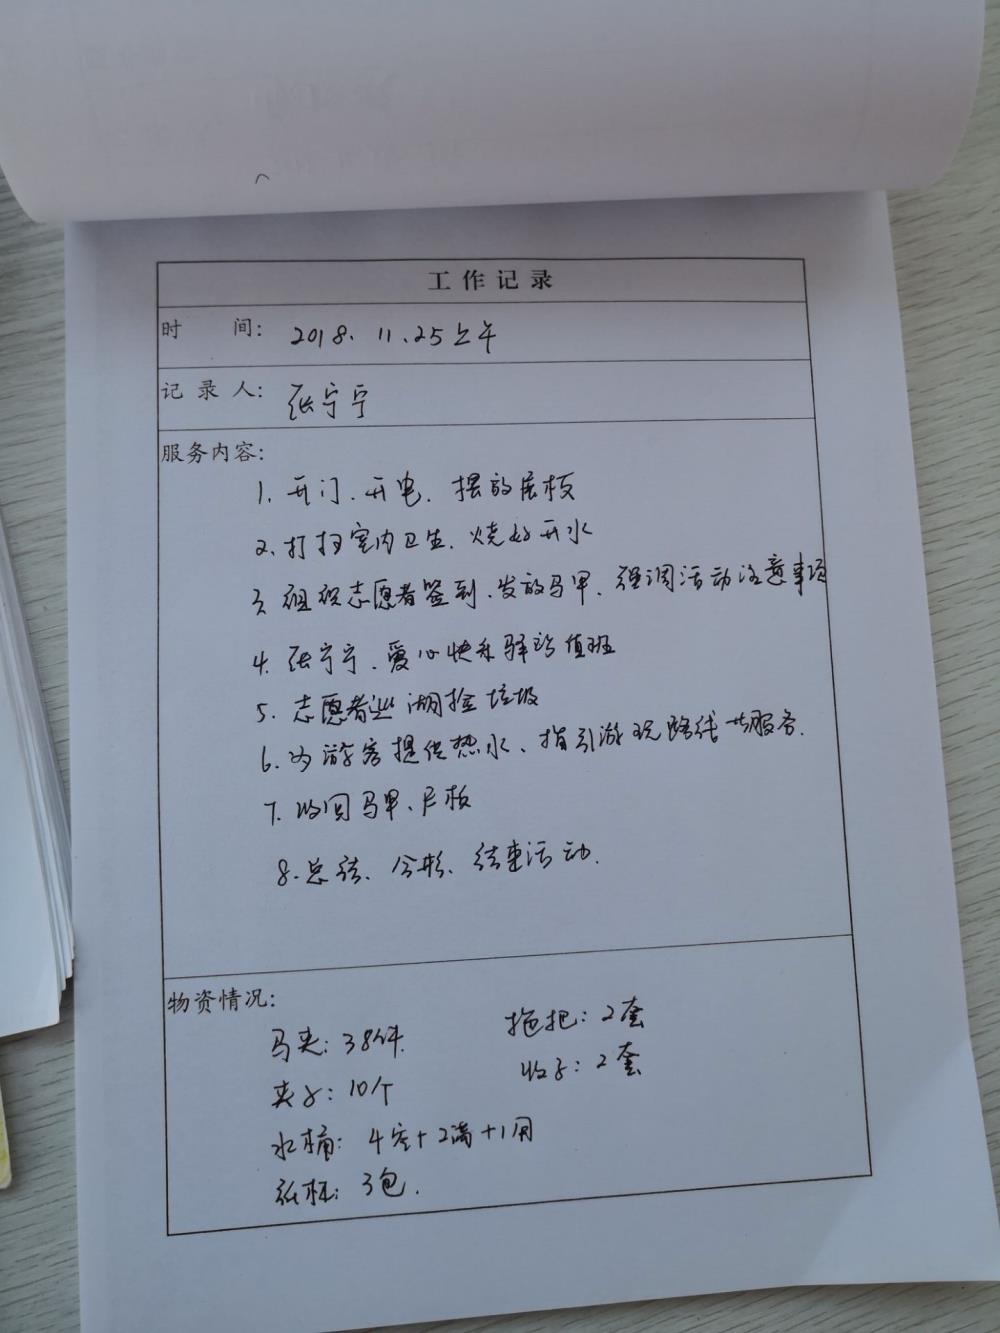 工作记录
时 间: 2018. 11. 25上午
记录人: 张宁宁
服务内容:
1. 开门、开电、摆放展板
2. 打扫室内卫生、烧好开水
3. 组织志愿者签到、发放马甲、强调活动注意事项
4. 张宁宁、爱心快乐驿站值班
5. 志愿者巡湖捡垃圾
6. 为游客提供热水、指引游玩路线等服务.
7. 收回马甲、展板
8. 总结、合影、结束活动.
物资情况:
马夹: 38件 拖把: 2套
夹子: 10个 2套
水桶: 4空+2满+1用
纸杯: 3包.